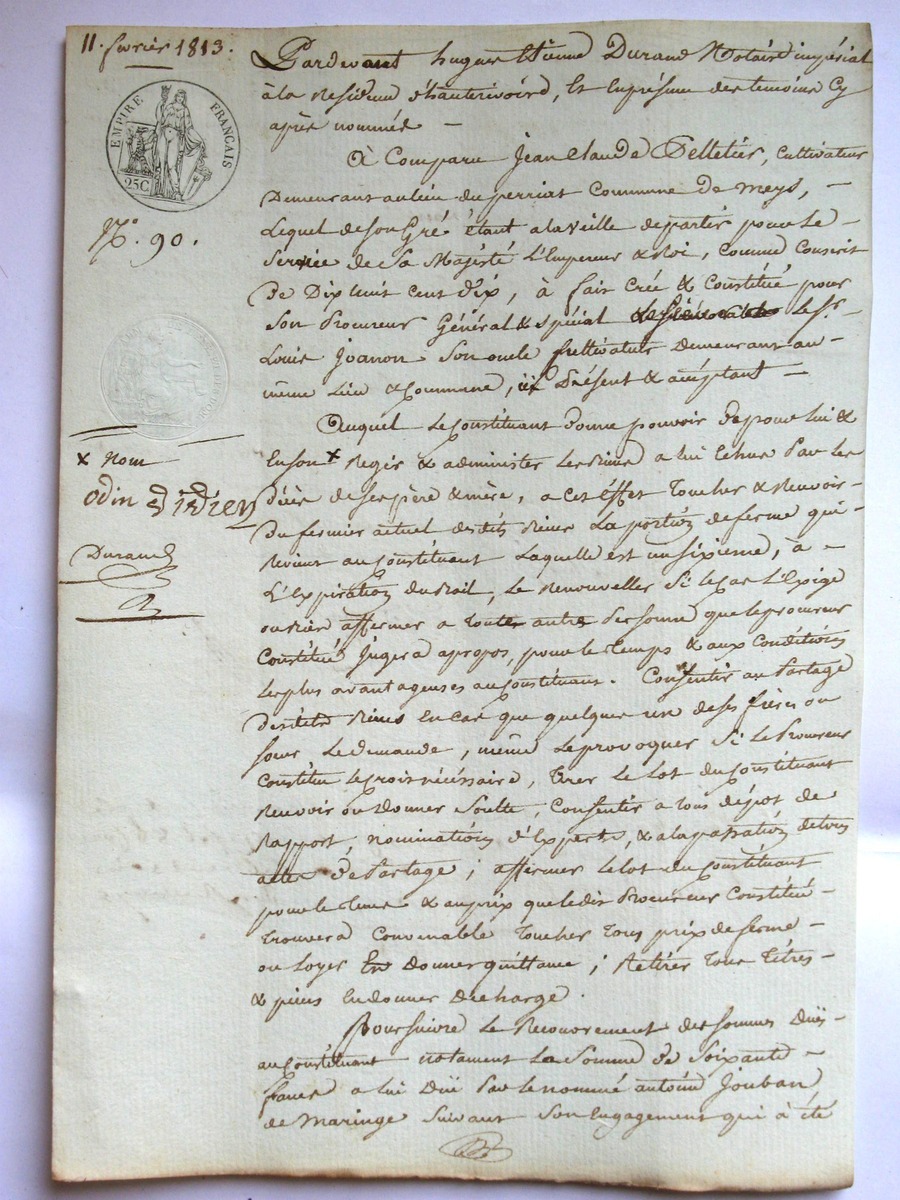 11. fevrier 1813.
EMPIRE FRANÇAIS
25C
N°. 90.
x Nom
odin didier
Durand
Pardevant hugues Etienne Durand Notaire impérial
à la Residence d'hauterivoire, Et En présence des temoins Cy
après nommés —
A Comparu Jean Claude Pelletier, Cultivateur
Demeurant au lieu du perriat Commune de Meys, —
Lequel de son Gré étant a la veille de partir pour le —
Service de Sa Majesté L'Empereur & Roi, comme Conscrit
de Dix huit cent dix, à fait Créé & Constitué pour
Son Procureur Général & spécial le Sr. —
Louis Joanon Son oncle Cultivateur Demeurant au —
même Lieu & Commune, ici Présent & acceptant —
Auquel Le Constituant donne pouvoir de pour lui &
En son x Regir & administer les Biens a lui Echus Par le
décès de ses père & mère, a cet éffet Toucher & Recevoir —
Du fermier actuel desdits Biens La portion de ferme qui —
Revient au Constituant Laquelle est un sixieme, à —
L'Expiration du Bail, Le Renouveller Si le cas L'Exige
ou Bien affermer a toute autre Personne que le procureur
Constitué Jugera apropos, pour le Temps & aux Conditions
les plus avantageuses au Constituant. Consentir au Partage
desdits Biens En cas que quelqu'un de ses frères ou
soeur Le demande, même Le provoquer Si le Procureur
Constitué le crois nécéssaire, Tirer Le Lot du Constituant
Recevoir ou Donner Soulte, Consentir a tous dépot de
Rapport, nomination d'Experts, & a la passation de tous
actes de Partage; affermer le lot du Constituant
pour le Tems & au prix que ledit Procureur Constitué —
Trouvera Convenable Toucher Tous prix de ferme —
ou Loyer En Donner quittance; Retirer Tous Titres —
& pièces En donner Décharge.
Poursuivre Le Recouvrement des Sommes Duës —
au Constituant notament La Somme de Soixante —
francs a lui Duë Par le nommé antoine Jouban
de Maringe Suivant Son Engagement qui à été